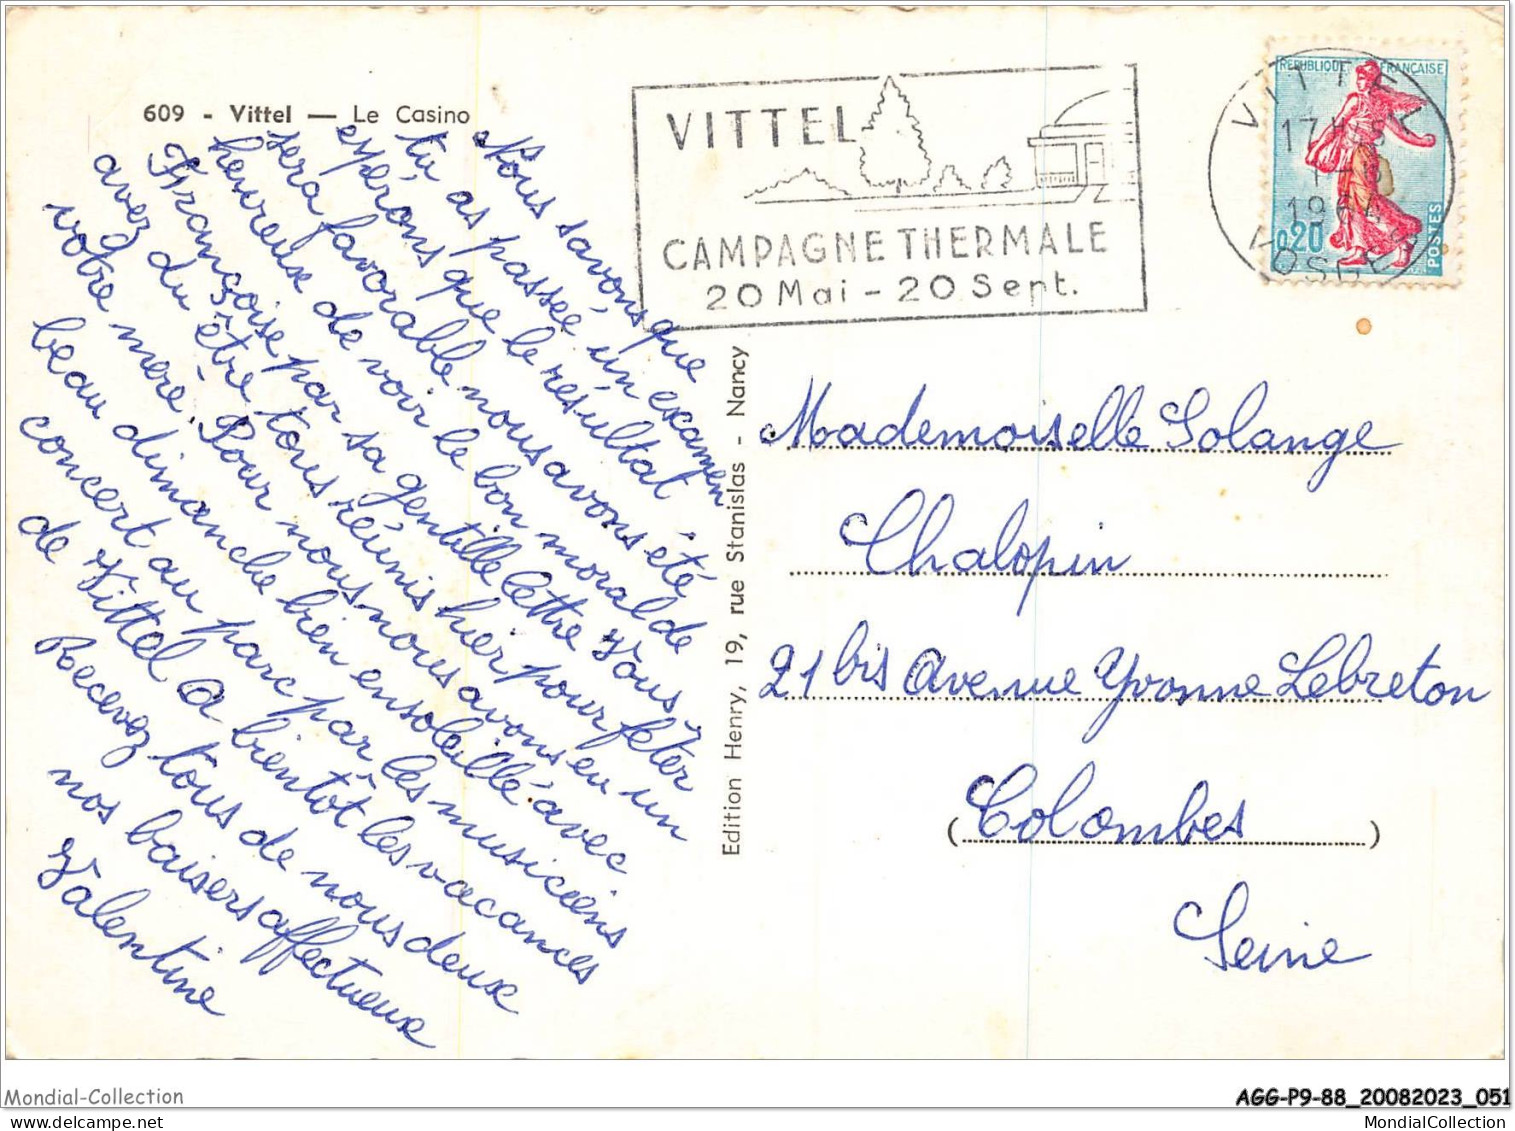 609 - Vittel — Le Casino
VITTEL
CAMPAGNE THERMALE
20 Mai - 20 Sept.
REPUBLIQUE FRANÇAISE
0,20
POSTES
VITTEL
17H
VOSGES
Nous savons que
tu as passée un examen
espérons que le résultat
sera favorable nous avons été
heureux de voir le bon moral de
Françoise par sa gentille lettre Vous
avez du être tous réunis hier pour fêter
votre mère. Pour nous nous avons eu un
beau dimanche bien ensoleillé avec
concert au parc par les musiciens
de Vittel a bientôt les vacances
Recevez tous de nous deux
nos baisers affectueux
Valentine
Edition Henry, 19, rue Stanislas - Nancy
Mademoiselle Solange
Chalopin
21 bis Avenue Yvonne Lebreton
(Colombes)
Seine
Mondial-Collection
AGG-P9-88_20082023_051
MondialCollection